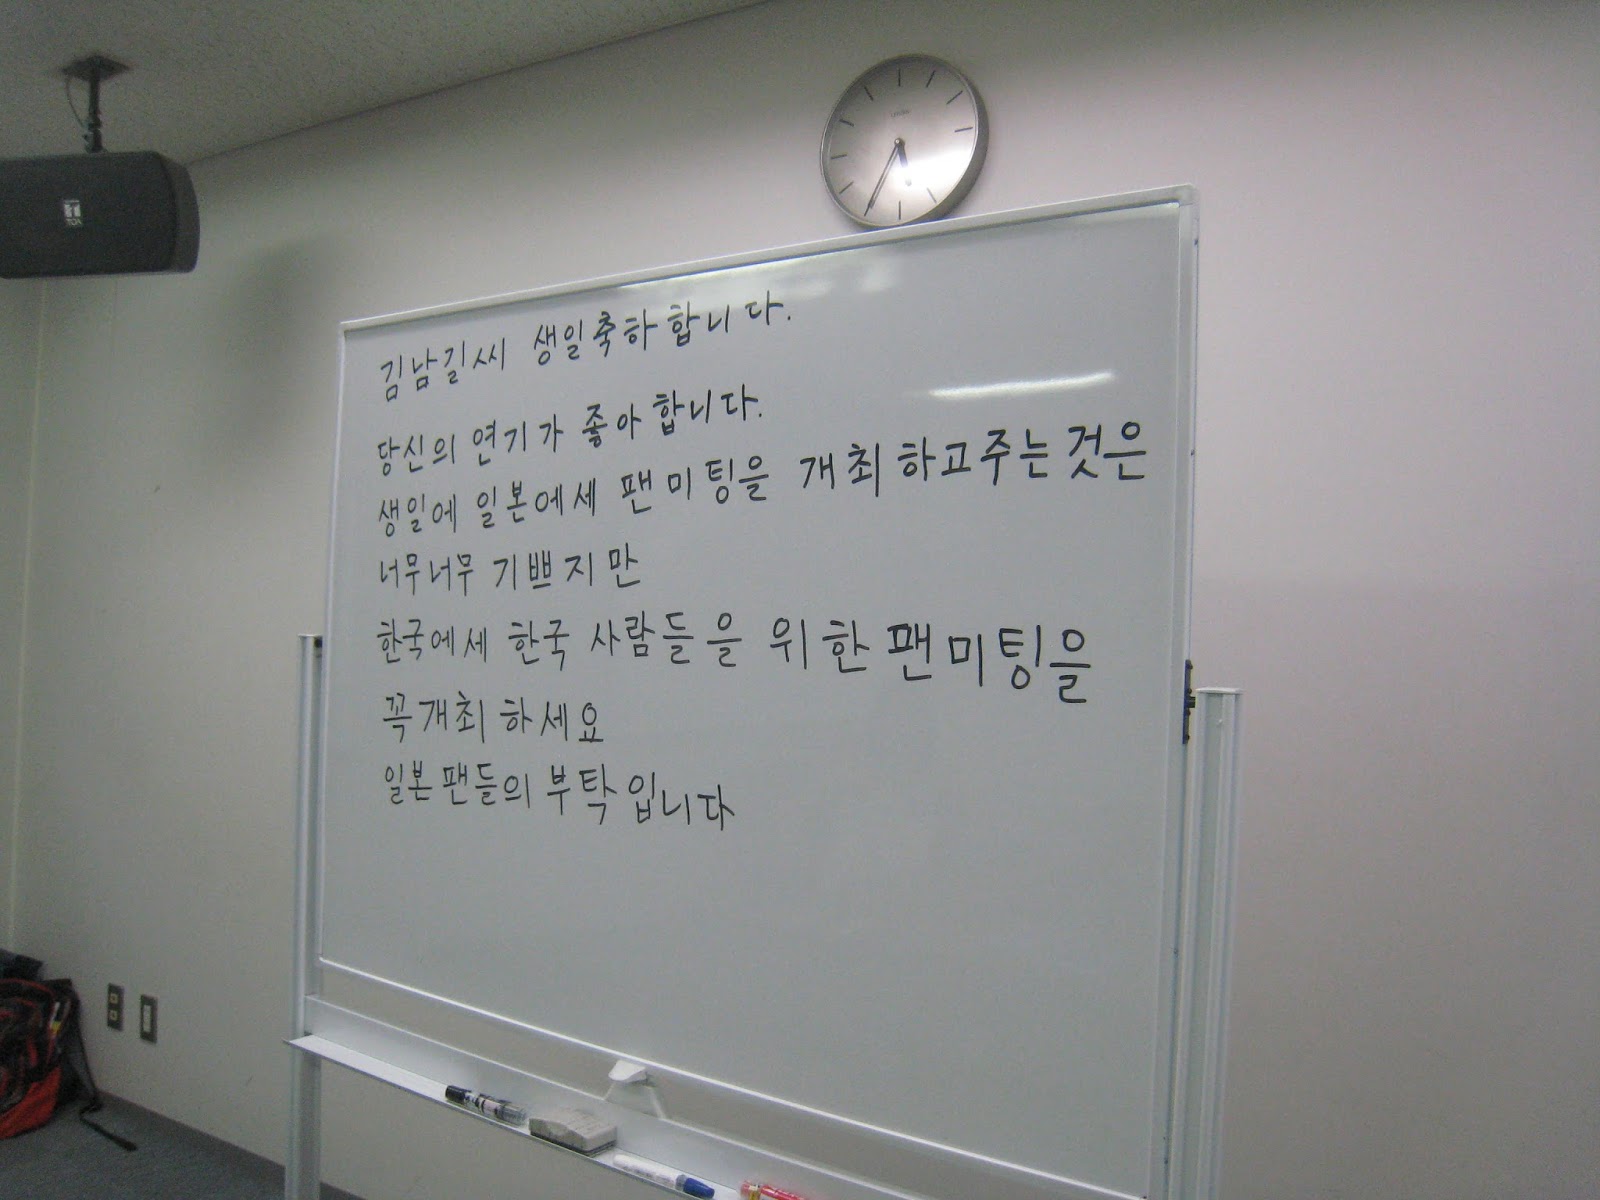 김남길씨 생일축하합니다.
당신의 연기가 좋아합니다.
생일에 일본에세 팬미팅을 개최하고주는것은
너무너무 기쁘지만
한국에세 한국 사람들을 위한팬미팅을
꼭개최하세요
일본팬들의 부탁입니다
TOA